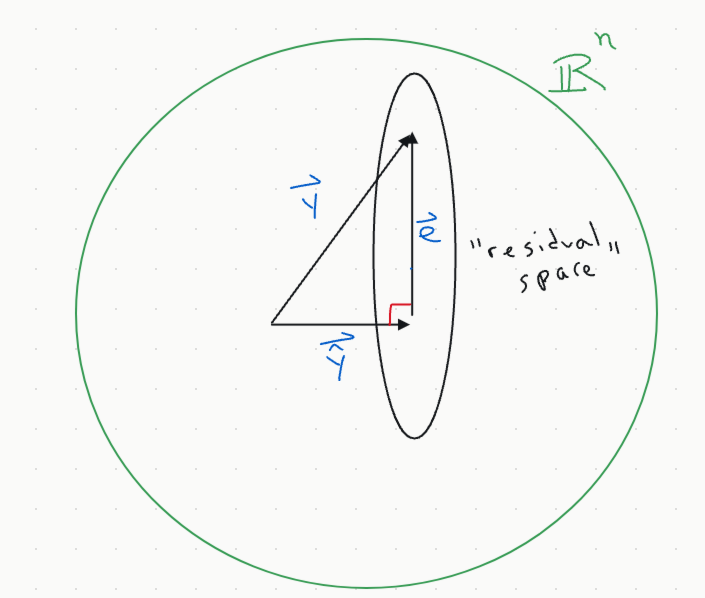 ℝⁿ
Y⃗
e⃗
"residual"
space
Ŷ⃗